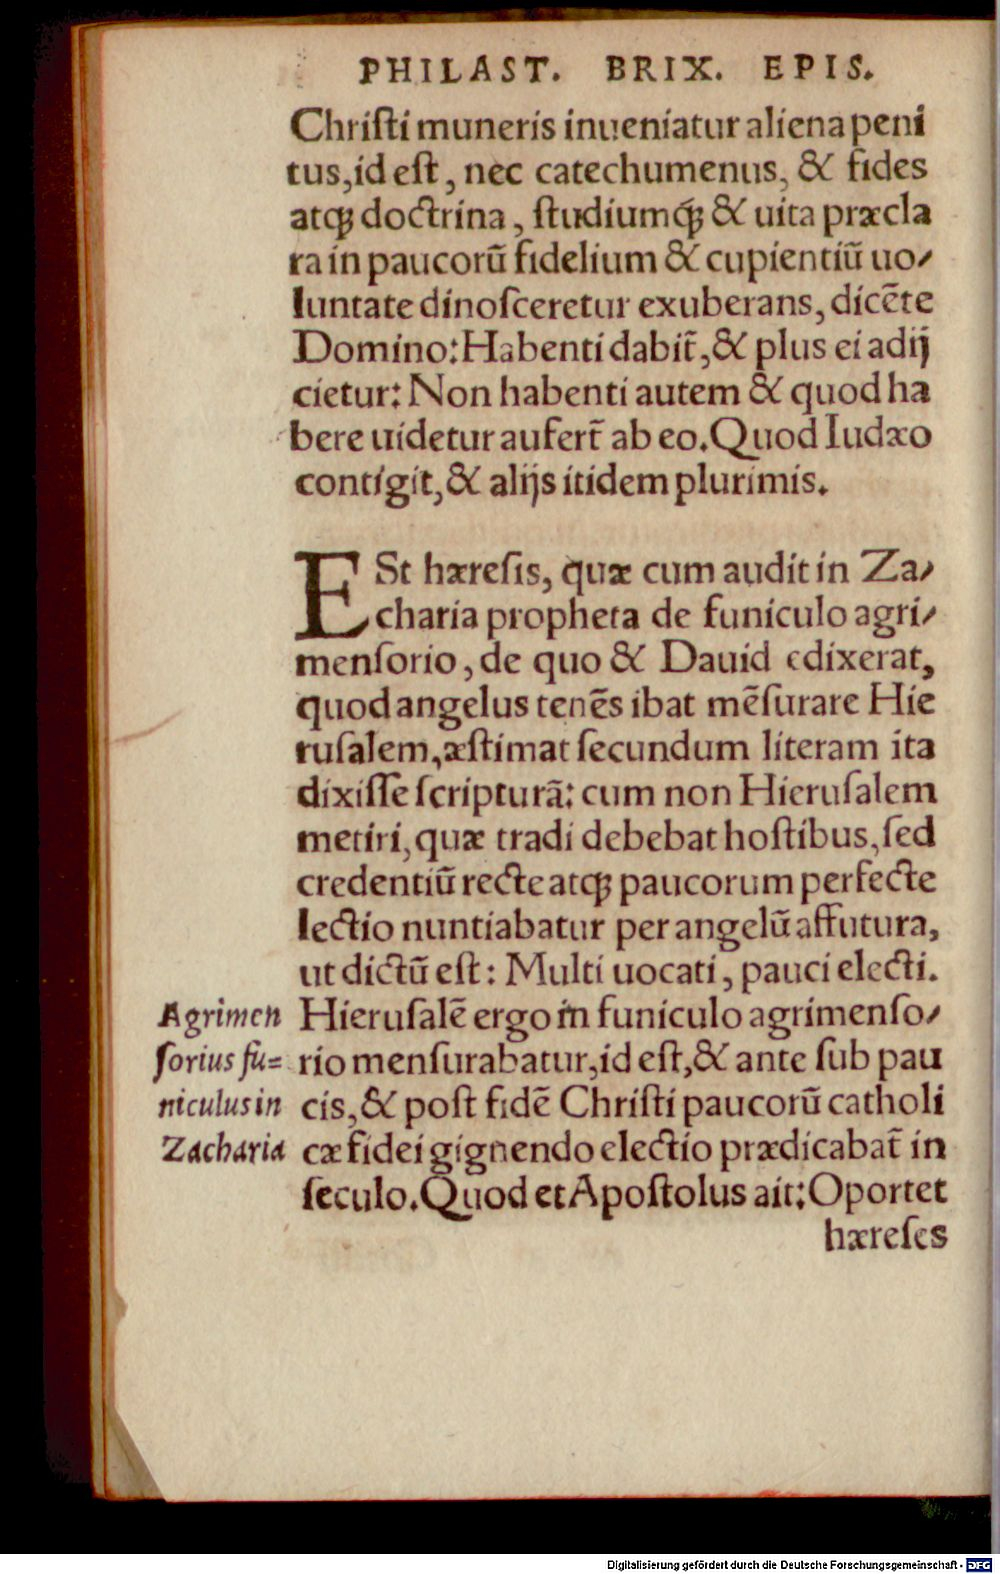 PHILAST. BRIX. EPIS.
Chriſti muneris inueniatur aliena peni
tus, id eſt, nec catechumenus, & fides
atꝗ doctrina, ſtudiumꝗ́ & uita præcla
ra in paucorũ fidelium & cupientiũ uo⸗
luntate dinoſceretur exuberans, dicẽte
Domino: Habenti dabit̃, & plus ei adij
cietur: Non habenti autem & quod ha
bere uidetur aufert̃ ab eo. Quod Iudæo
contigit, & alijs itidem plurimis.
ESt hæreſis, quæ cum audit in Za⸗
charia propheta de funiculo agri⸗
menſorio, de quo & Dauid edixerat,
quod angelus tenẽs ibat mẽſurare Hie
ruſalem, æſtimat ſecundum literam ita
dixiſſe ſcripturã: cum non Hieruſalem
metiri, quæ tradi debebat hoſtibus, ſed
credentiũ recte atꝗ paucorum perfecte
lectio nuntiabatur per angelũ affutura,
ut dictũ eſt: Multi uocati, pauci electi.
Hieruſalẽ ergo in funiculo agrimenſo⸗
rio menſurabatur, id eſt, & ante ſub pau
cis, & poſt fidẽ Chriſti paucorũ catholi
cæ fidei gignendo electio prædicabat̃ in
ſeculo. Quod et Apoſtolus ait: Oportet
hæreſes
Agrimen
ſorius fu=
niculus in
Zacharia
Digitalisierung gefördert durch die Deutsche Forschungsgemeinschaft - DFG